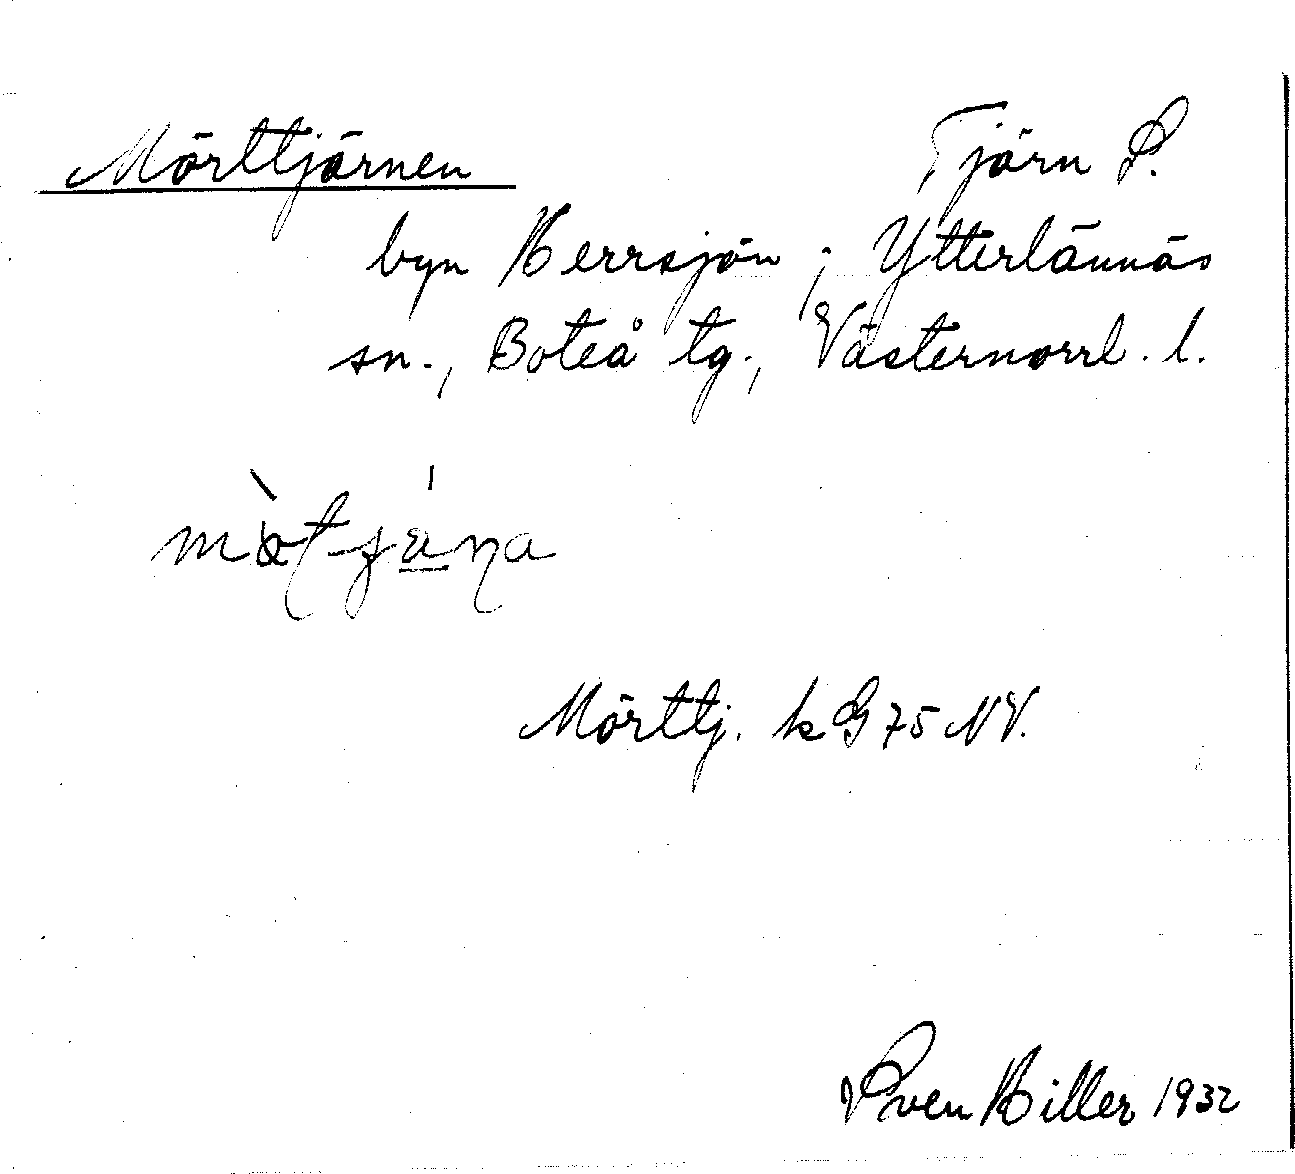 Mörttjärnen Tjärn S.
byn Herrsjön i Ytterlännäs
sn., Boteå tg., Västernorrl. l.
Mörttj. k G 75 NV.
Sven Hiller 1932